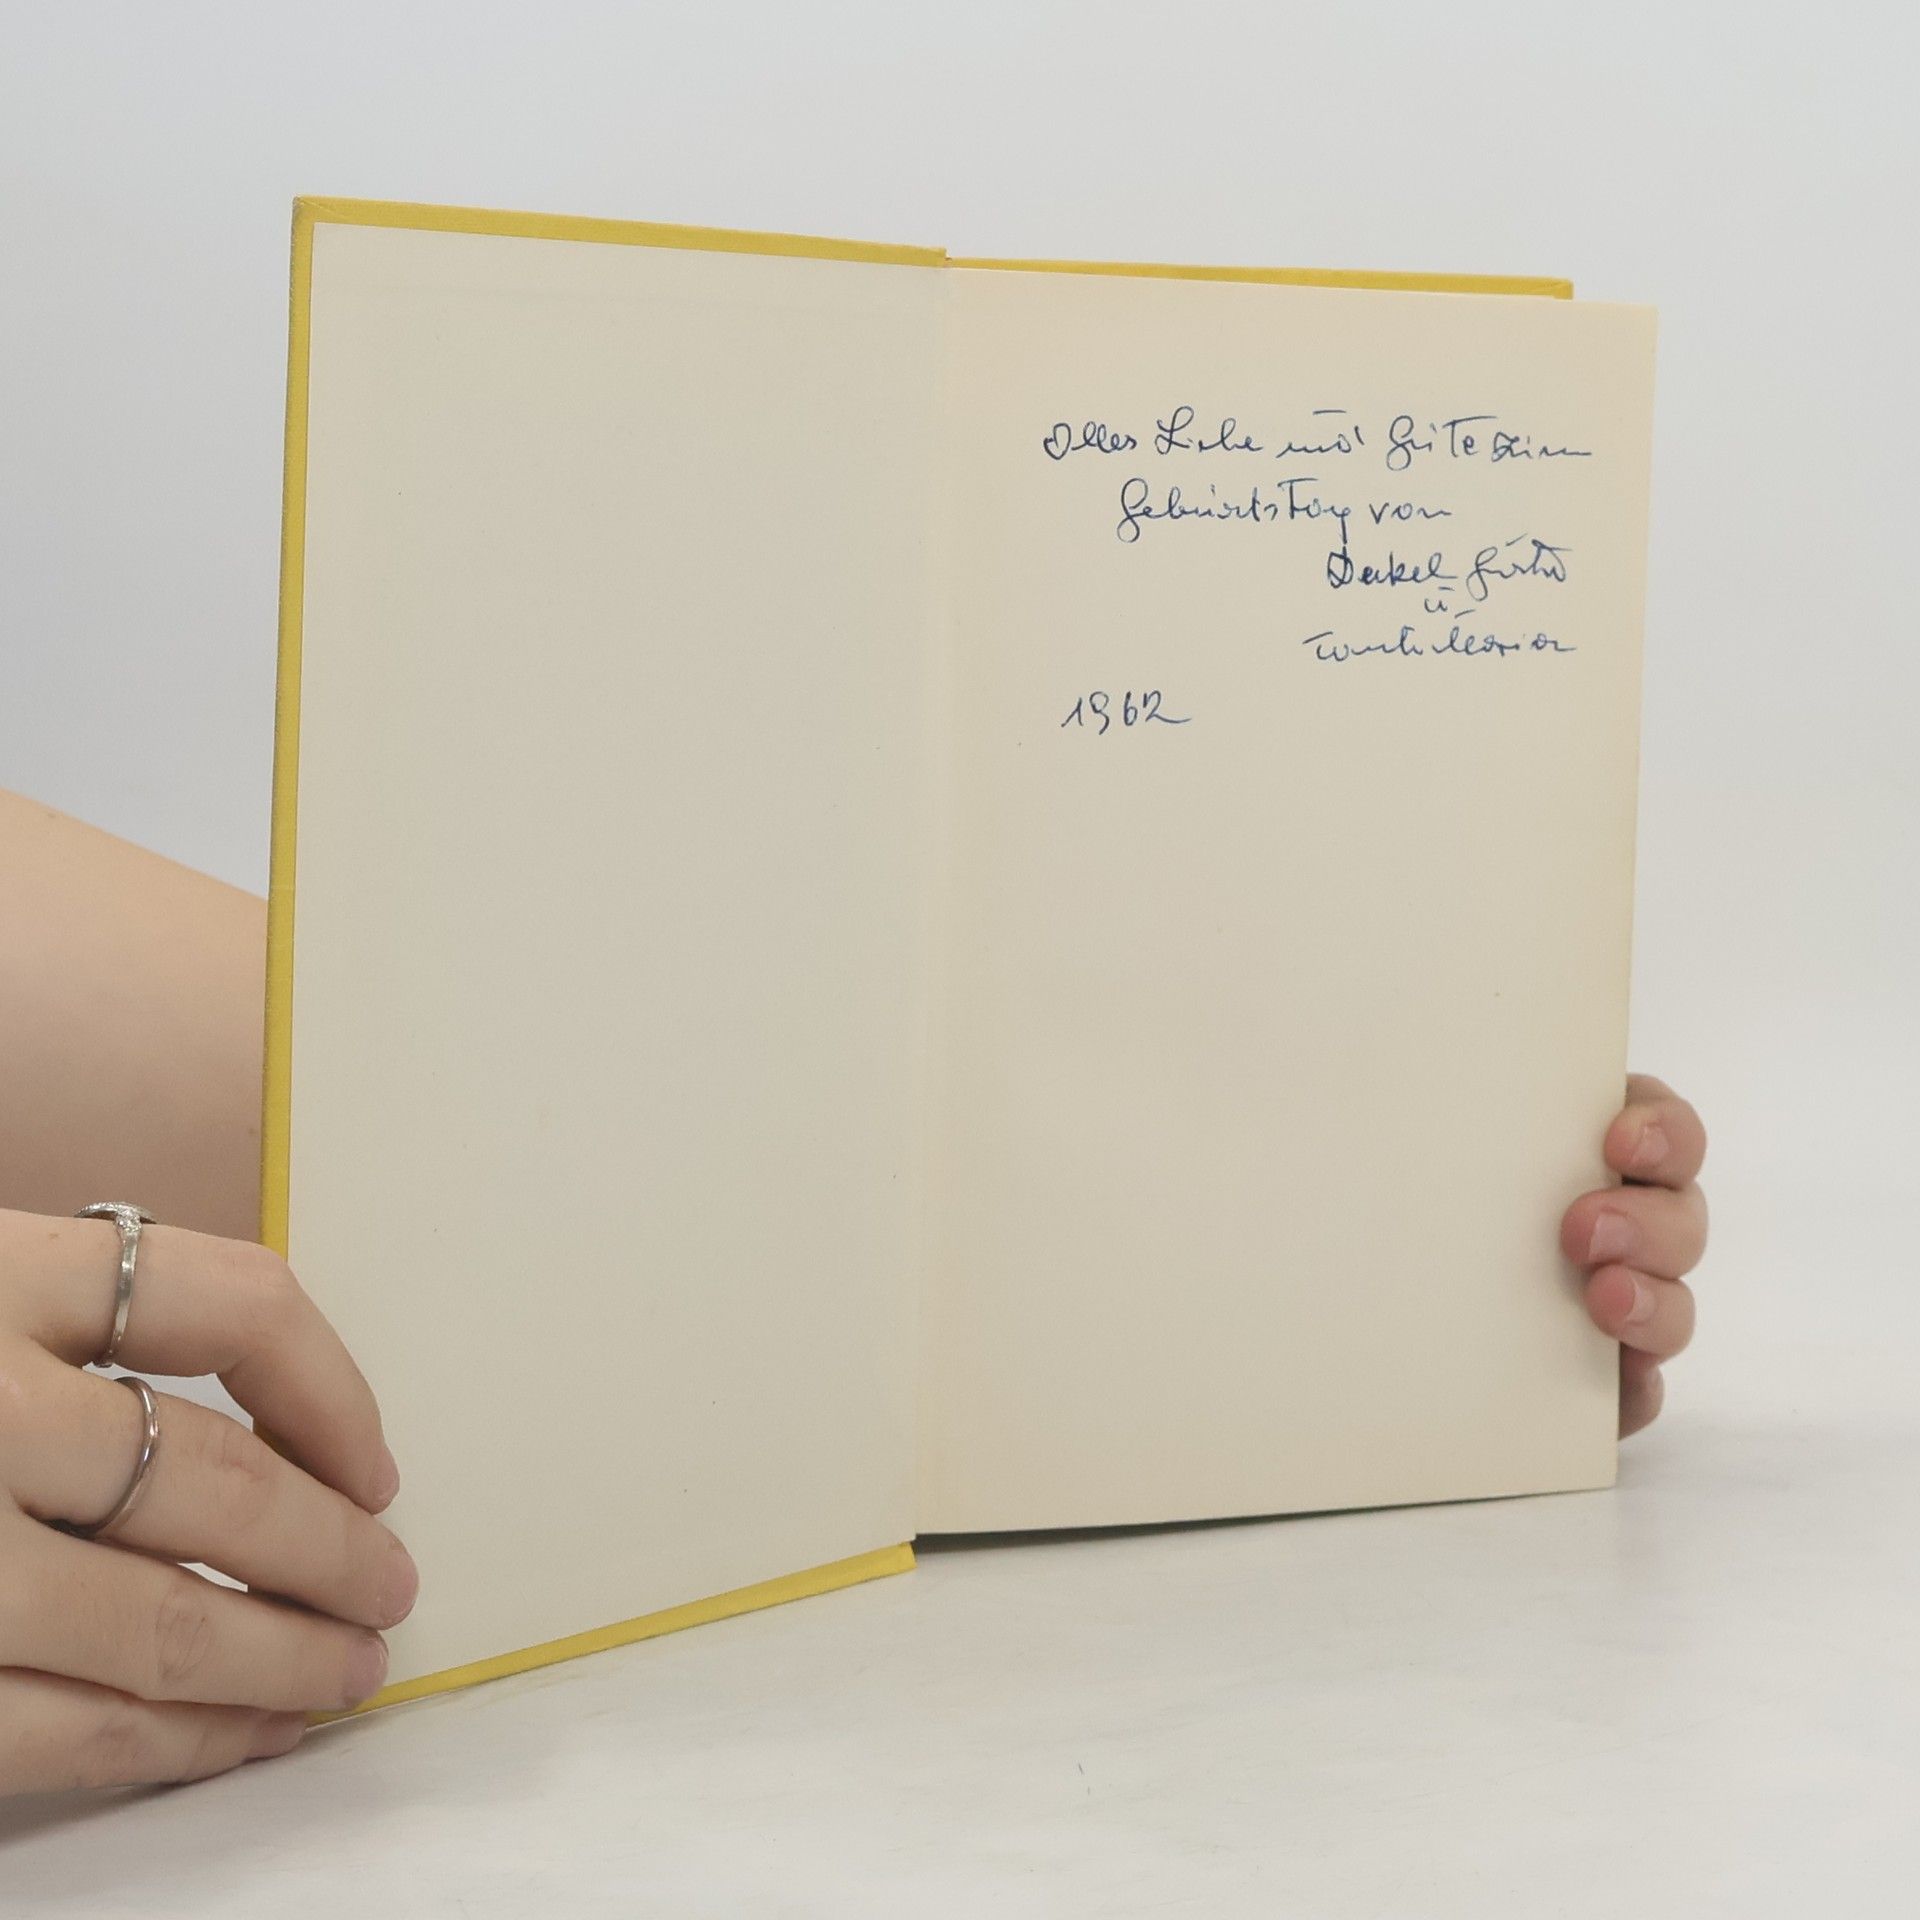 Alles Liebe und Gute zum
Geburtstag von
Onkel
u
Tante Maria
1962